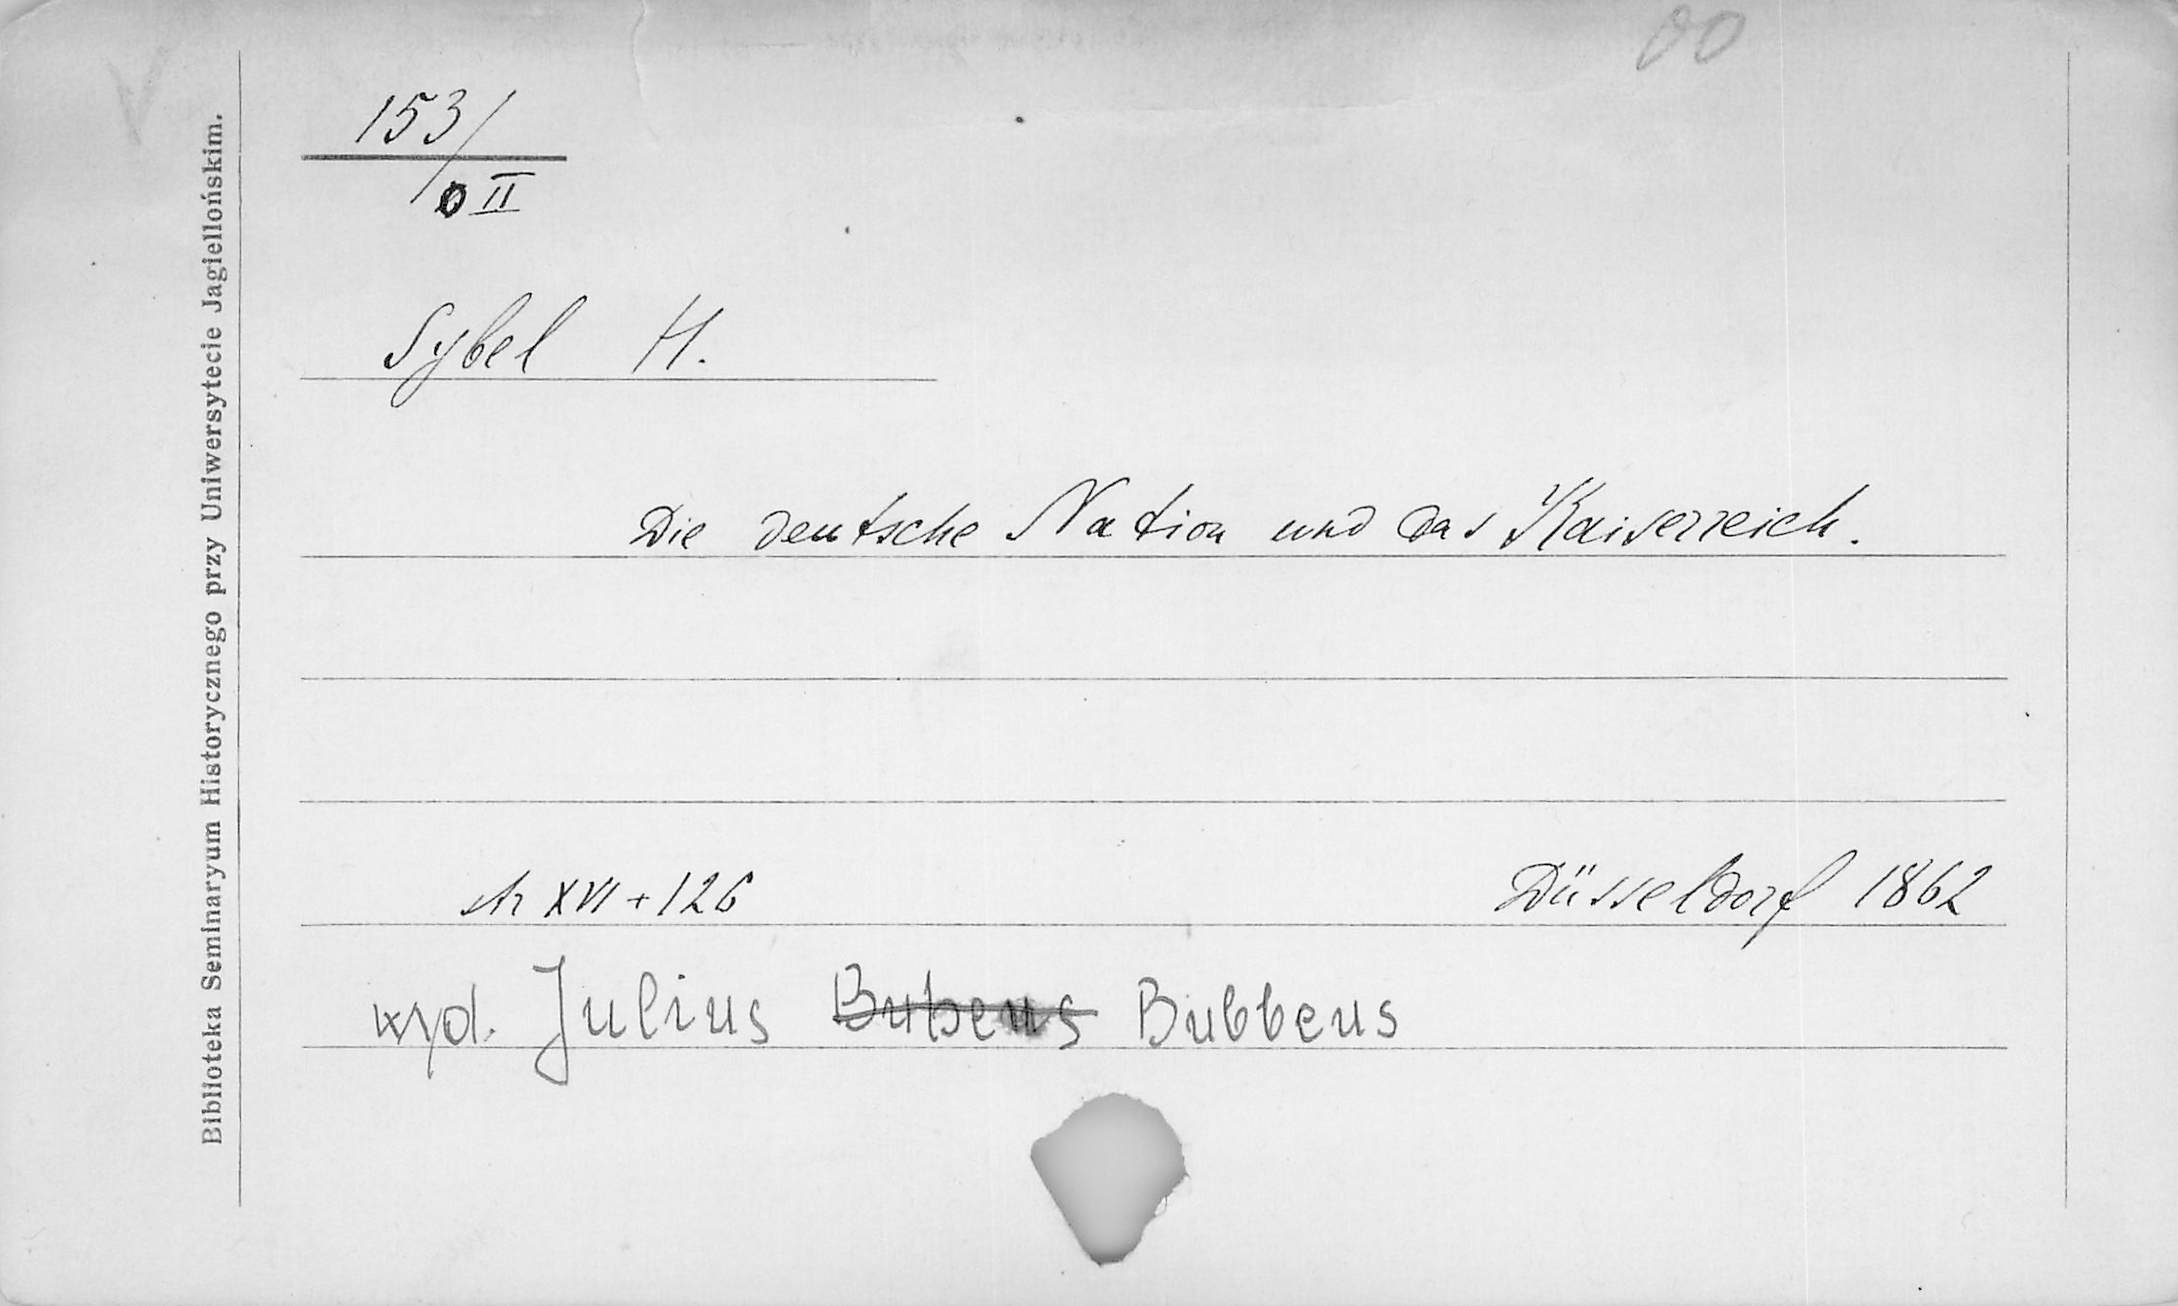 00
153/
O II
Sybel H.
Die deutsche Nation und das Kaiserreich.
str XVI + 126 Düsseldorf 1862
wyd. Julius Bubeus Bubbeus
Biblioteka Seminaryum Historycznego przy Uniwersytecie Jagiellońskim.